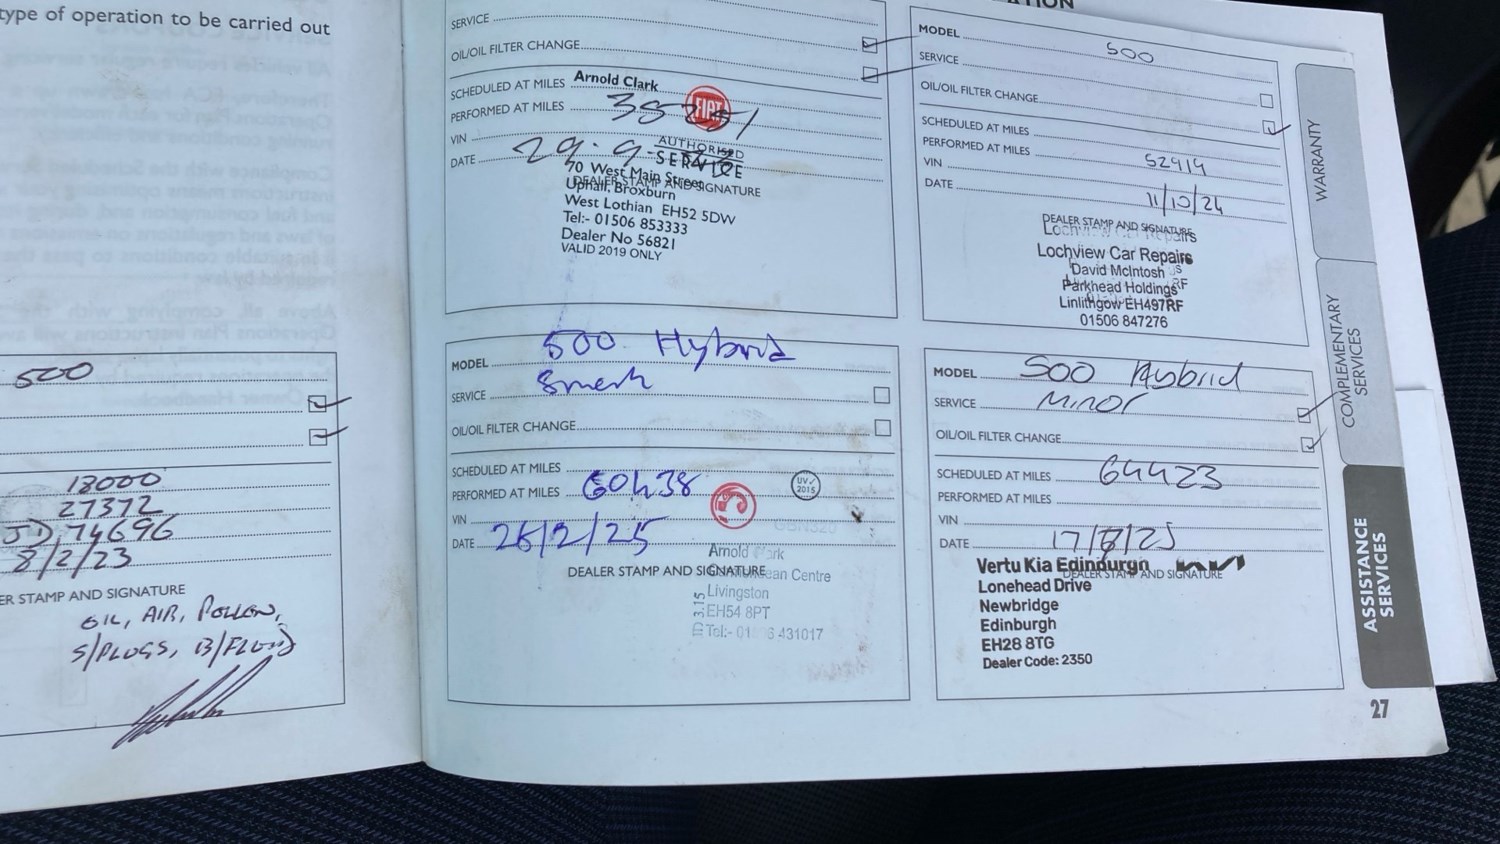 type of operation to be carried out
500
18000
27372
JD 74696
8/2/23
ER STAMP AND SIGNATURE
OIL, AIR, POLLEN,
S/PLUGS, B/FLUID
SERVICE
OIL/OIL FILTER CHANGE
SCHEDULED AT MILES
Arnold Clark
PERFORMED AT MILES
FIAT
VIN
AUTHORISED
DATE 29.9.
SERVICE
70 West Main Street
DEALER STAMP AND SIGNATURE
Uphall, Broxburn
West Lothian EH52 5DW
Tel:- 01506 853333
Dealer No 56821
VALID 2019 ONLY
MODEL 500
SERVICE
OIL/OIL FILTER CHANGE
SCHEDULED AT MILES
PERFORMED AT MILES 52919
VIN
DATE 11/10/24
DEALER STAMP AND SIGNATURE
Lochview Car Repairs
David McIntosh
Parkhead Holdings
Linlithgow EH497RF
01506 847276
MODEL 500 Hybrid
SERVICE
OIL/OIL FILTER CHANGE
SCHEDULED AT MILES
PERFORMED AT MILES 60438
UV 2015
VIN
DATE 26/2/25
Arnold Clark
DEALER STAMP AND SIGNATURE
Centre
Livingston
EH54 8PT
Tel:- 01 6 431017
MODEL 500 Hybrid
SERVICE Minor
OIL/OIL FILTER CHANGE
SCHEDULED AT MILES 64423
PERFORMED AT MILES
VIN
DATE 17/8/25
Vertu Kia Edinburgh
DEALER STAMP AND SIGNATURE
Lonehead Drive
Newbridge
Edinburgh
EH28 8TG
Dealer Code: 2350
WARRANTY
COMPLEMENTARY
SERVICES
ASSISTANCE
SERVICES
27